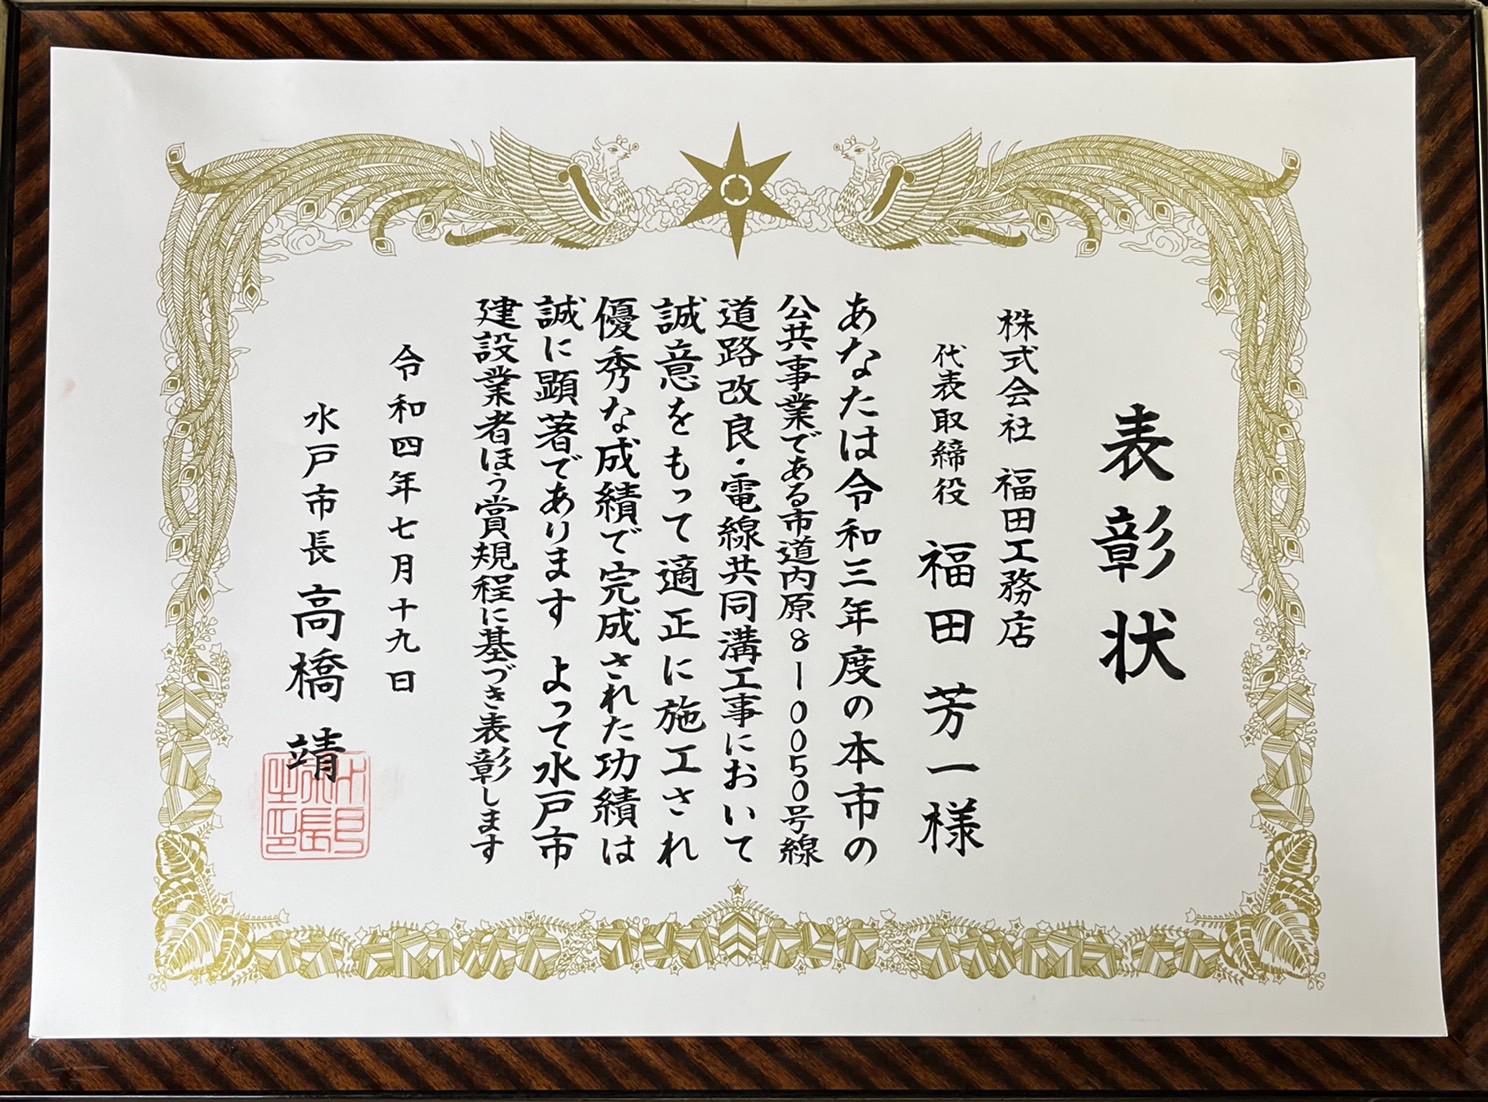 表彰状
株式会社 福田工務店
代表取締役 福田 芳一様
あなたは令和三年度の本市の
公共事業である市道内原8-0050号線
道路改良・電線共同溝工事において
誠意をもって適正に施工され
優秀な成績で完成された功績は
誠に顕著であります よって水戸市
建設業者ほう賞規程に基づき表彰します
令和四年七月十九日
水戸市長 高橋 靖
水戸市長之印